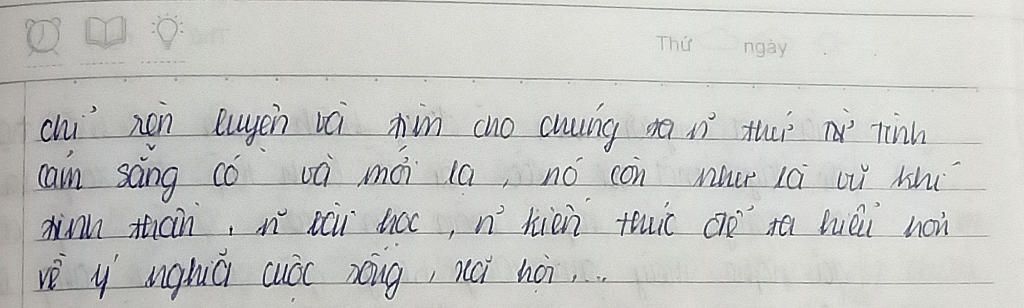 Thứ ngày
chỉ rèn luyện và tìm cho chúng ta n~ thứ từ tình
cảm sẵng có và mới lạ, nó còn như là vũ khí
tinh thần, n~ bài học, n~ kiến thức để ta hiểu hơn
về ý nghĩa cuộc sống, xã hội,...